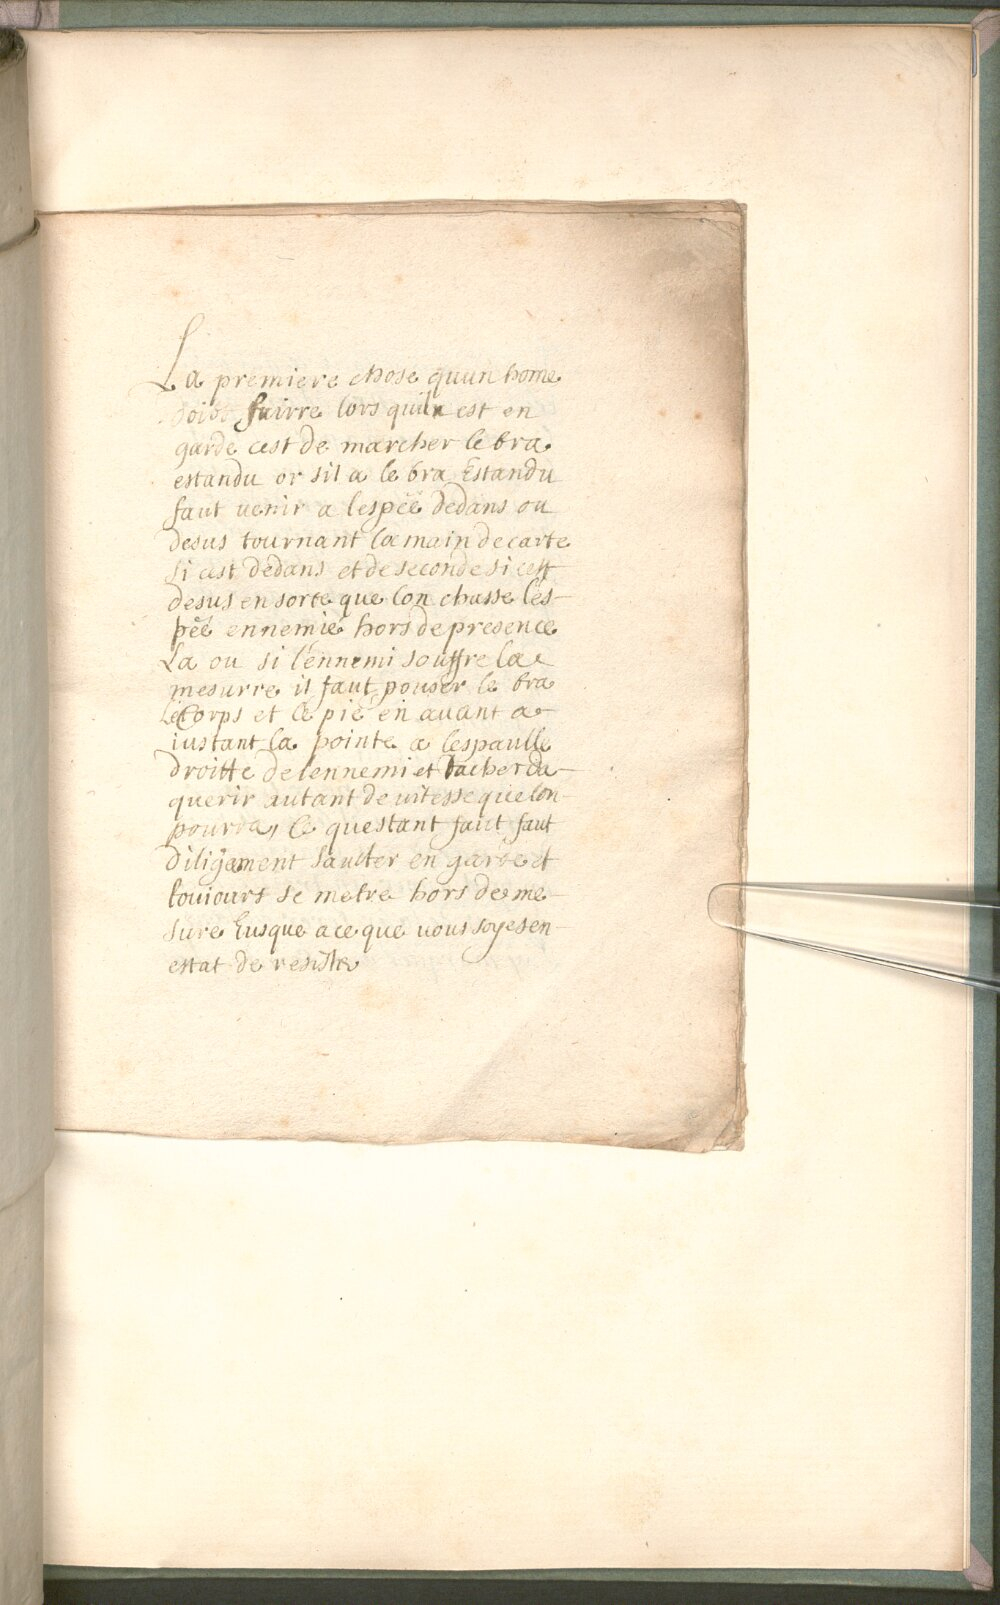 La premiere chose quun home
doibt fairre lors quil est en
garde cest de marcher le bra
estandu or sil a le bra Estandu
faut venir a lespéé dedans ou
desus tournant la main de carte
si cest dedans et de seconde si cest
desus en sorte que lon chasse lés-
péé ennemié hors de presence
La ou si lénnemi souffre la
mesurre il faut pouser le bra
le Corps et le pié en avant a-
iustant la pointe a lespaulle
droitte de lennemi et tacher da-
querir autant de vitesse que lon-
pourra, le questant faut faut
diligement sauter en garde et
touiours se metre hors de me-
sure Iusque a ce que vous soyes en-
estat de resister